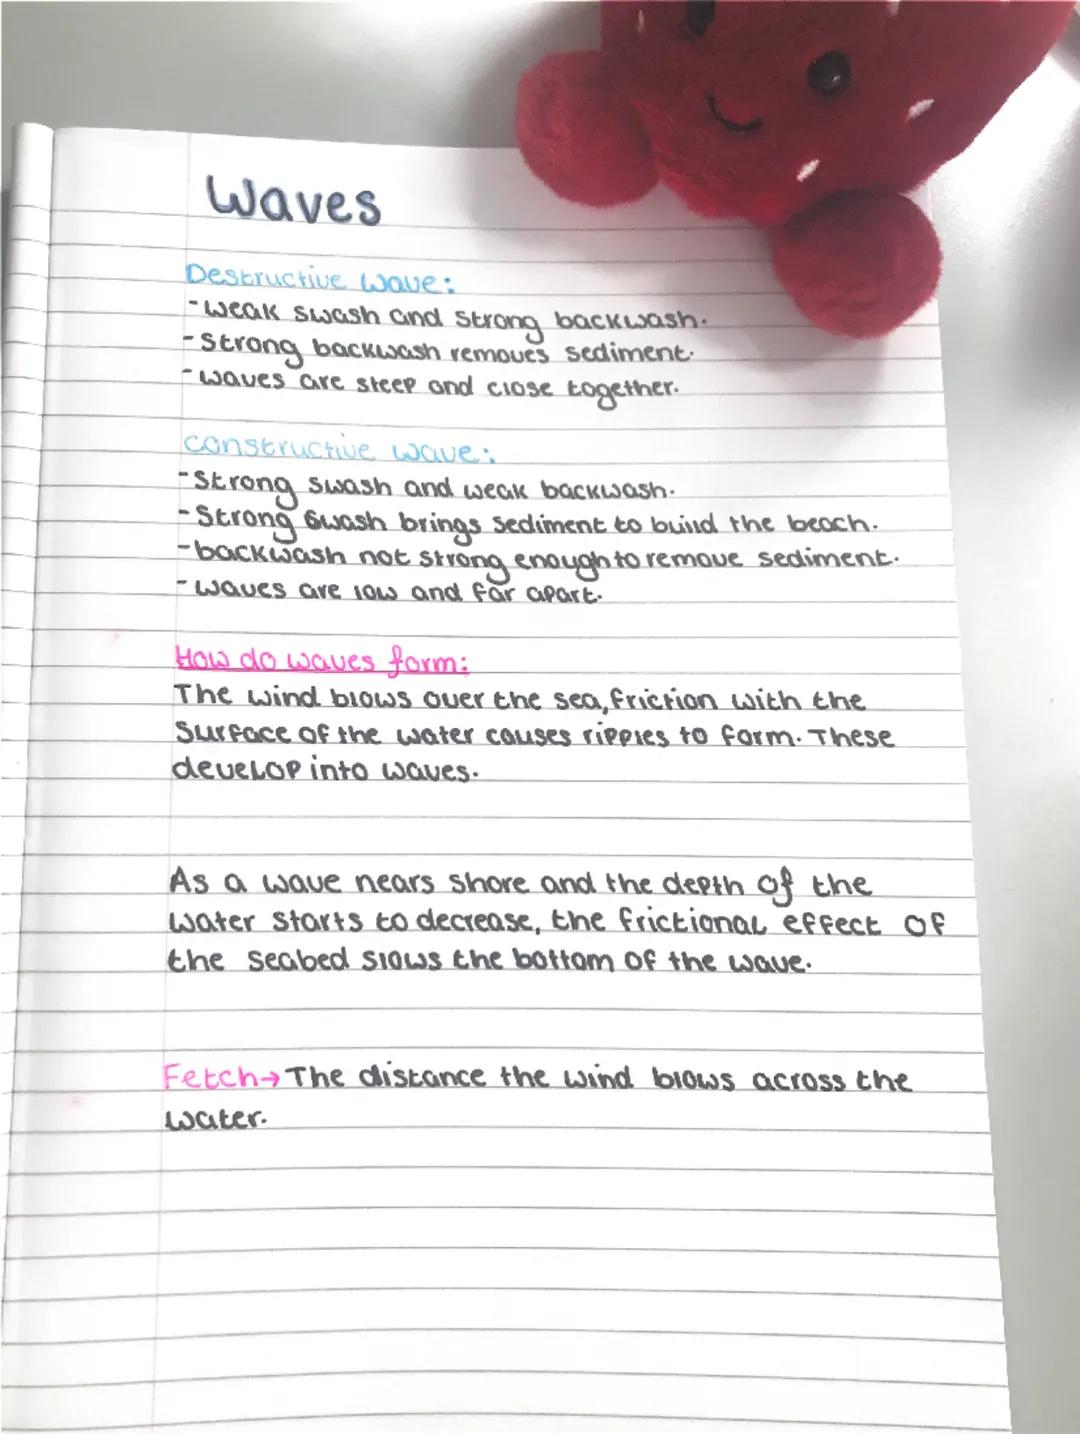 Waves
Destructive wave:
-weak swash and strong backwash.
-Strong backwash removes sediment.
-waves are steep and close together.
constructive wave:
-Strong swash and weak backwash.
-Strong swash brings sediment to build the beach.
-backwash not strong enough to remove sediment.
-waves are low and far apart.
How do waves form:
The wind blows over the sea, friction with the
surface of the water causes ripples to form. These
develop into waves.
As a wave nears shore and the depth of the
water starts to decrease, the frictional effect of
the seabed slows the bottom of the wave.
Fetch→The distance the wind blows across the
water.